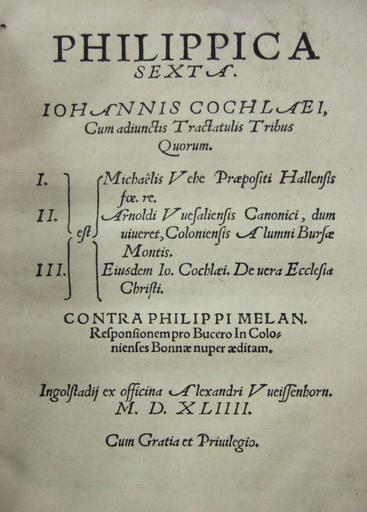 PHILIPPICA
SEXTA.
IOHANNIS COCHLAEI,
Cum adiunctis Tractatulis Tribus
Quorum.
I. Michaëlis Vehe Præpositi Hallensis
fœ. re.
II. est Arnoldi Vuesaliensis Canonici, dum
uiueret, Coloniensis Alumni Bursæ
Montis.
III. Eiusdem Io. Cochlæi. De uera Ecclesia
Christi.
CONTRA PHILIPPI MELAN.
Responsionem pro Bucero In Colo-
nienses Bonnæ nuper æditam.
Ingolstadij ex officina Alexandri Vueissenhorn.
M. D. XLIIII.
Cum Gratia et Priuilegio.